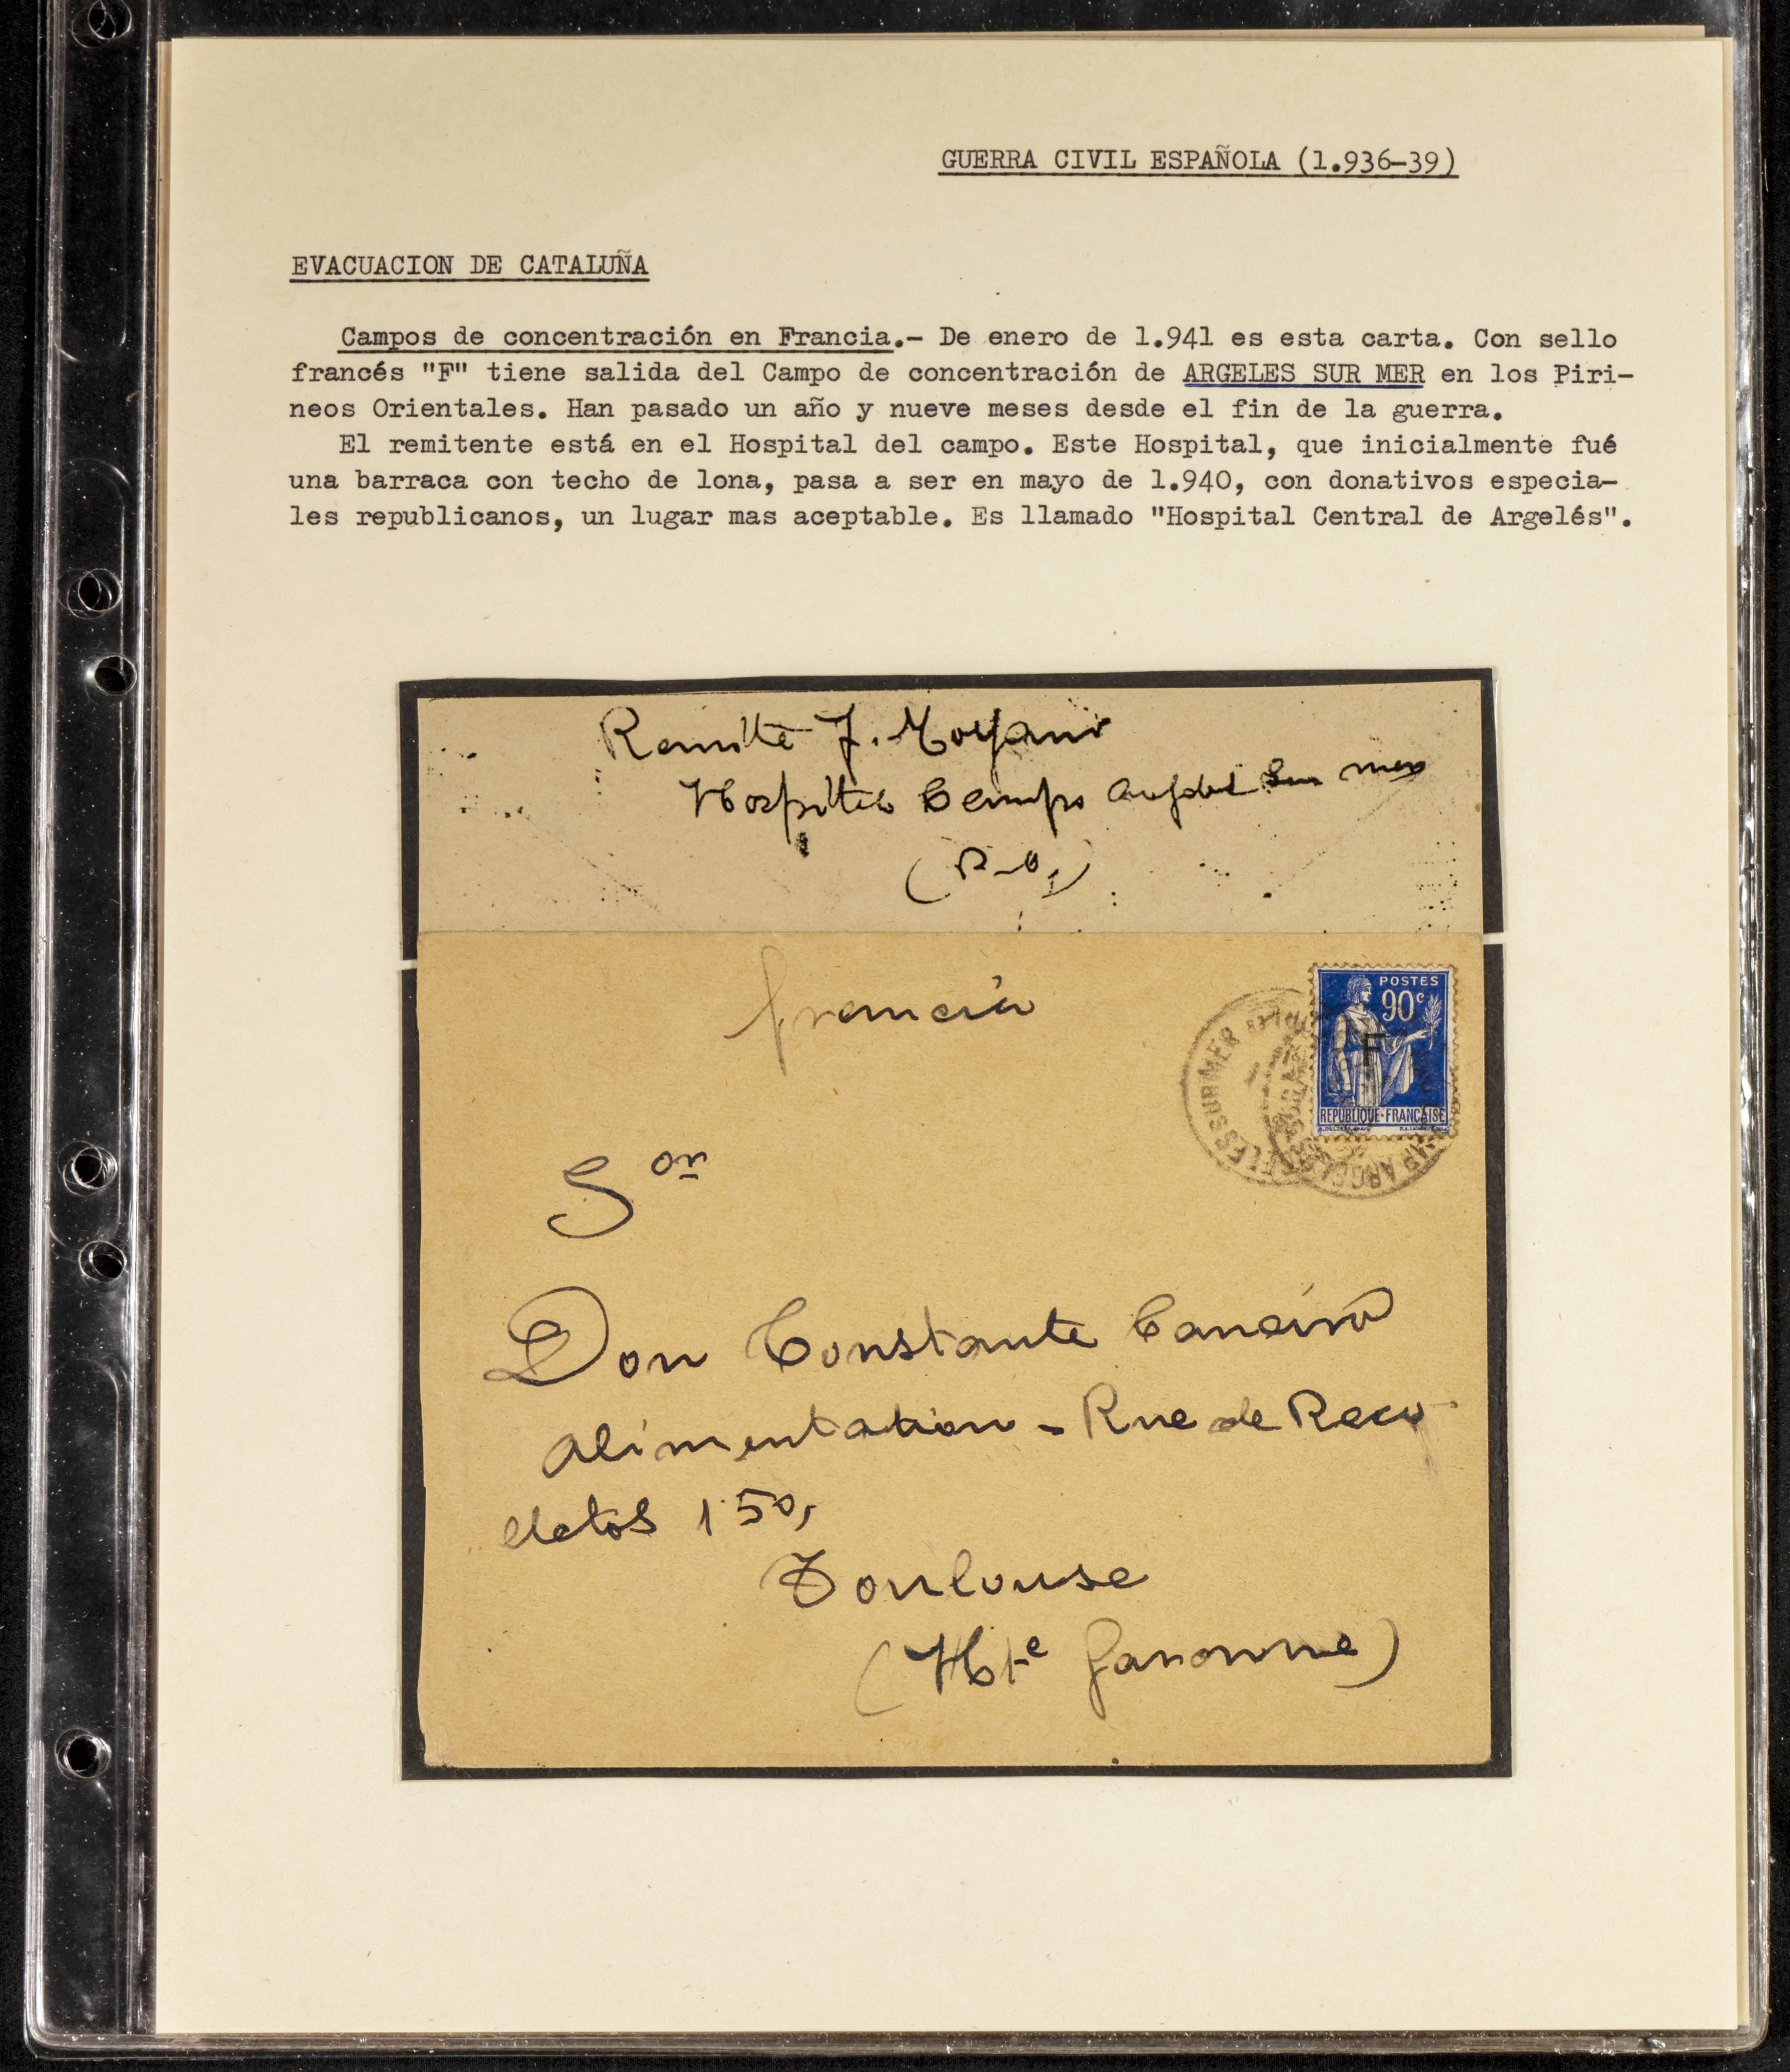 GUERRA CIVIL ESPAÑOLA (1.936-39)
EVACUACION DE CATALUÑA
Campos de concentración en Francia.- De enero de 1.941 es esta carta. Con sello
francés "F" tiene salida del Campo de concentración de ARGELES SUR MER en los Piri-
neos Orientales. Han pasado un año y nueve meses desde el fin de la guerra.
El remitente está en el Hospital del campo. Este Hospital, que inicialmente fué
una barraca con techo de lona, pasa a ser en mayo de 1.940, con donativos especia-
les republicanos, un lugar mas aceptable. Es llamado "Hospital Central de Argelés".
Remitte J. Moyano
Hospital Campo Argeles Sur mer
(P-O,)
francia
POSTES
90c
F
REPUBLIQUE-FRANÇAISE
ARGELES SUR MER
Sor
Don Constante Canciro
alimentation - Rue de Reco
lletos 150,
Toulouse
(Hte Garonne)